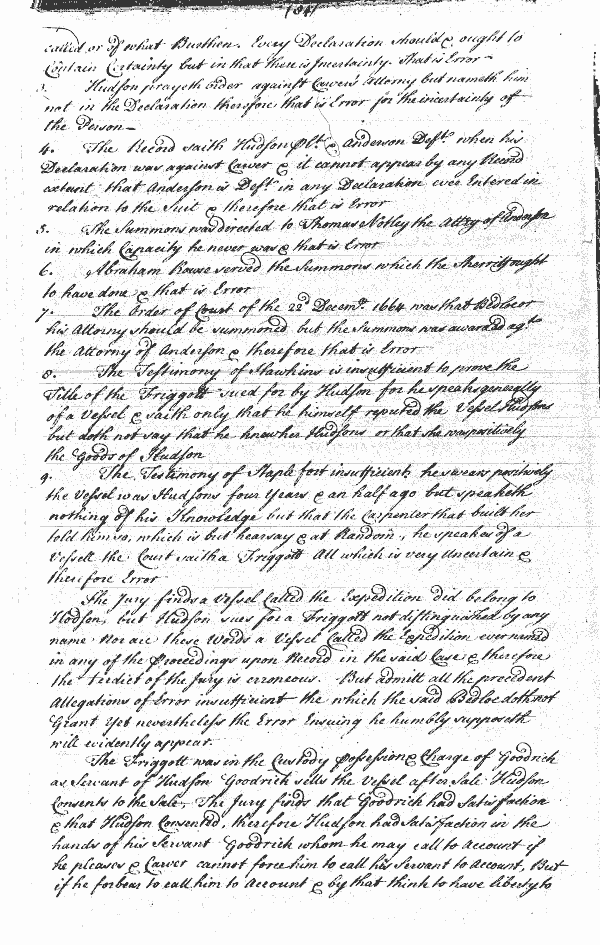 (84)
called or of what Burthen. Every Declaration should & ought to
Contain Certainty but in that there is Incertainty. That is Error
3. Hudson prayeth order against Carver's Attorny but nameth him
not in the Declaration therefore that is Error for the incertainty of
the Person
4. The Record saith Hudson Plt. & Anderson Deft. when his
Declaration was against Carver & it cannot appear by any Record
extant that Anderson is Deft. in any Declaration ever Entered in
relation to the Suit & therefore that is Error
5. The Summons was directed to Thomas Notley the Atty of Anderson
in which Capacity he never was & that is Error
6. Abraham Rouse served the Summons which the Sherriff ought
to have done & that is Error
7. The Order of Court of the 22d Decemr. 1664 was that Bedloe or
his Attorny should be summoned but the Summons was awarded agt.
the Attorny of Anderson & therefore that is Error
8. The Testimony of Hawkins is insufficient to prove the
Title of the Friggott sued for by Hudson for he speaks generally
of a Vessel & saith only that he himself reputed the Vessel Hudsons
but doth not say that he knew her Hudsons or that she was positively
the Goods of Hudson
9. The Testimony of Staplefort insufficient, he swears positively
the Vessel was Hudsons four Years & an half ago but speaketh
nothing of his Knowledge but that the Carpenter that built her
told him so, which is but hearsay & at Random, he speakes of a
Vessell the Court saith a Friggott All which is very Uncertain &
therefore Error
The Jury finds a Vessel Called the Expedition did belong to
Hodson, but Hudson sues for a Friggott not distinguished by any
name Nor are these Words a Vessel Called the Expedition ever named
in any of the Proceedings upon Record in the said Case & therefore
the Verdict of the Jury is erroneous. But admitt all the precedent
Allegations of Error insufficient the which the said Bedloe doth not
Grant Yet nevertheless the Error Ensuing he humbly supposeth
will evidently appear.
The Friggott was in the Custody Possession & Charge of Goodrich
as Servant of Hudson Goodrich sells the Vessel after Sale Hudson
Consents to the Sale, The Jury finds that Goodrich had Satisfaction
& that Hudson Consented, therefore Hudson had Satisfaction in the
hands of his Servant Goodrich whom he may call to Account if
he pleases & Carver cannot force him to call his Servant to Account, But
if he forbear to call him to Account & by that think to have liberty to